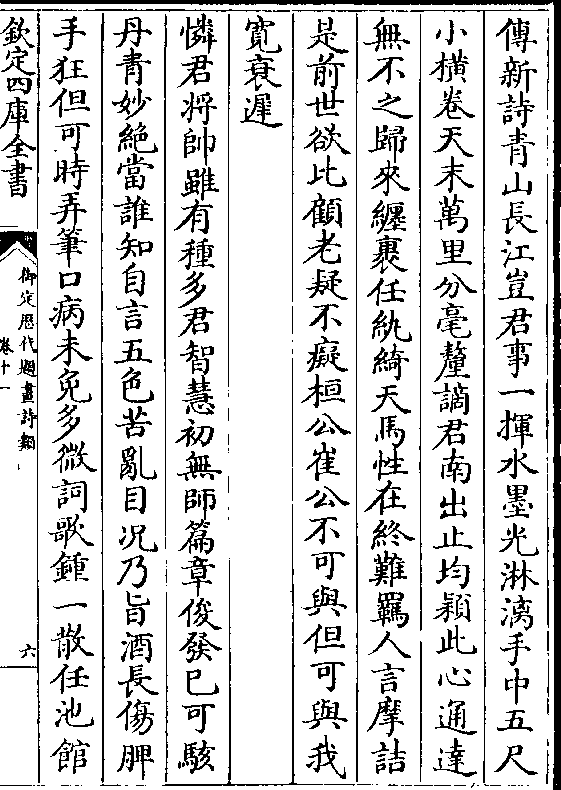 傳新詩青山長江豈君事一揮水墨光淋漓手中五尺
小橫卷天末萬里分毫釐謫君南出止均潁此心通達
無不之歸來纏裹任紈綺天馬性在終難羈人言摩詰
是前世欲比顧老疑不癡桓公崔公不可與但可與我
寛衰遲
憐君將帥雖有種多君智慧初無師篇章俊發已可駭
丹青妙絶當誰知自言五色苦亂目况乃旨酒長傷脾
手狂但可時弄筆口病未免多微詞歌鍾一散任池館
欽定四庫全書
御定歴代題畫詩類
卷十一
六